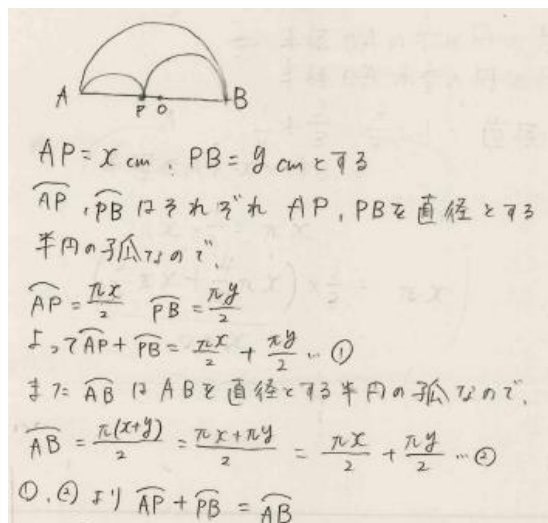 A P O B
AP = x cm、PB = y cmとする
⌒AP, ⌒PB はそれぞれ AP, PBを直径とする
半円の弧なので、
⌒AP = πx/2 ⌒PB = πy/2
よって⌒AP + ⌒PB = πx/2 + πy/2 … ①
また ⌒AB は ABを直径とする半円の弧なので、
⌒AB = π(x+y)/2 = πx+πy/2 = πx/2 + πy/2 … ②
①, ② より ⌒AP + ⌒PB = ⌒AB